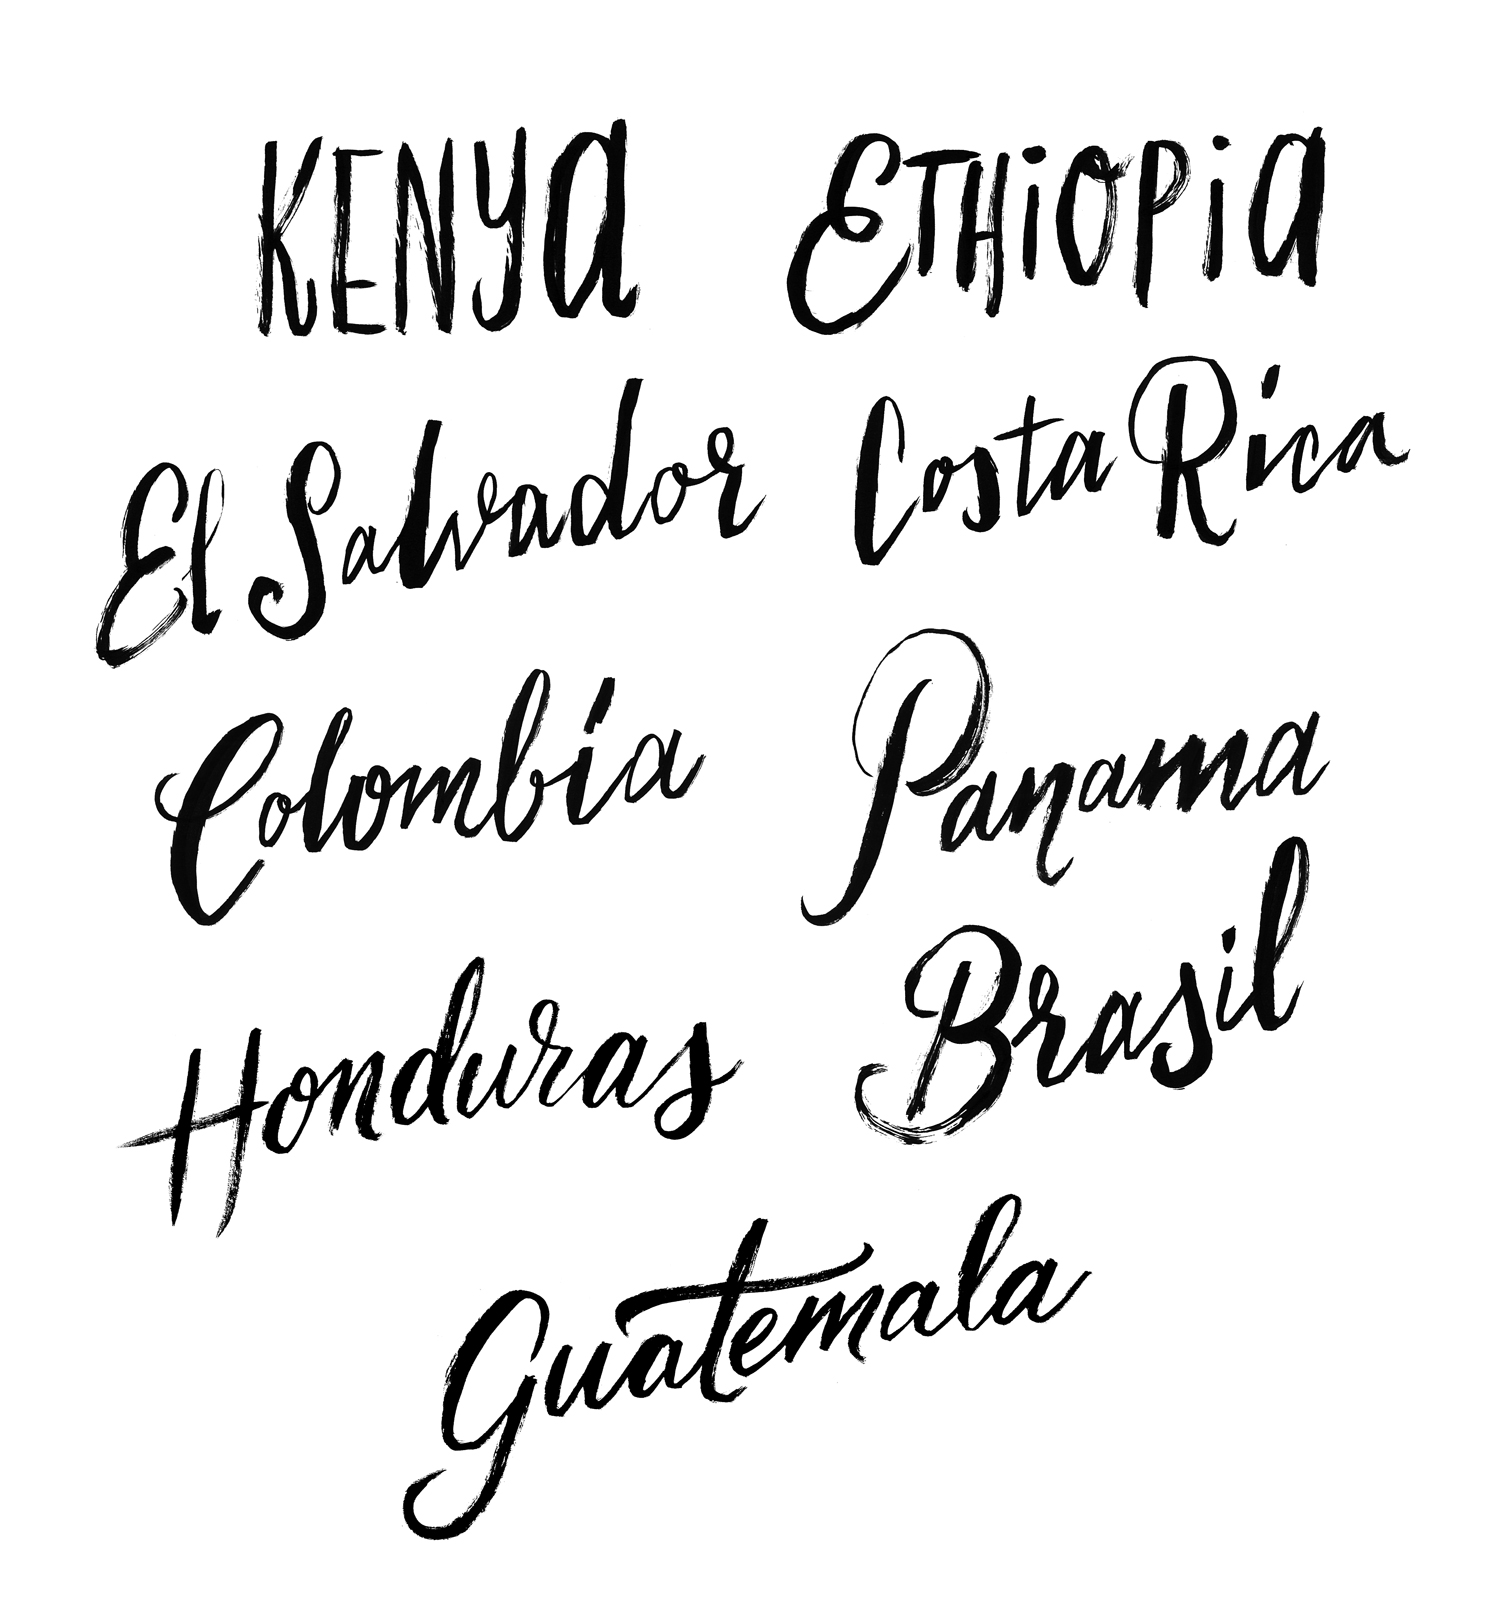 KENYa
ETHiOPia
El Salvador
Costa Rica
Colombia
Panama
Honduras
Brasil
Guatemala